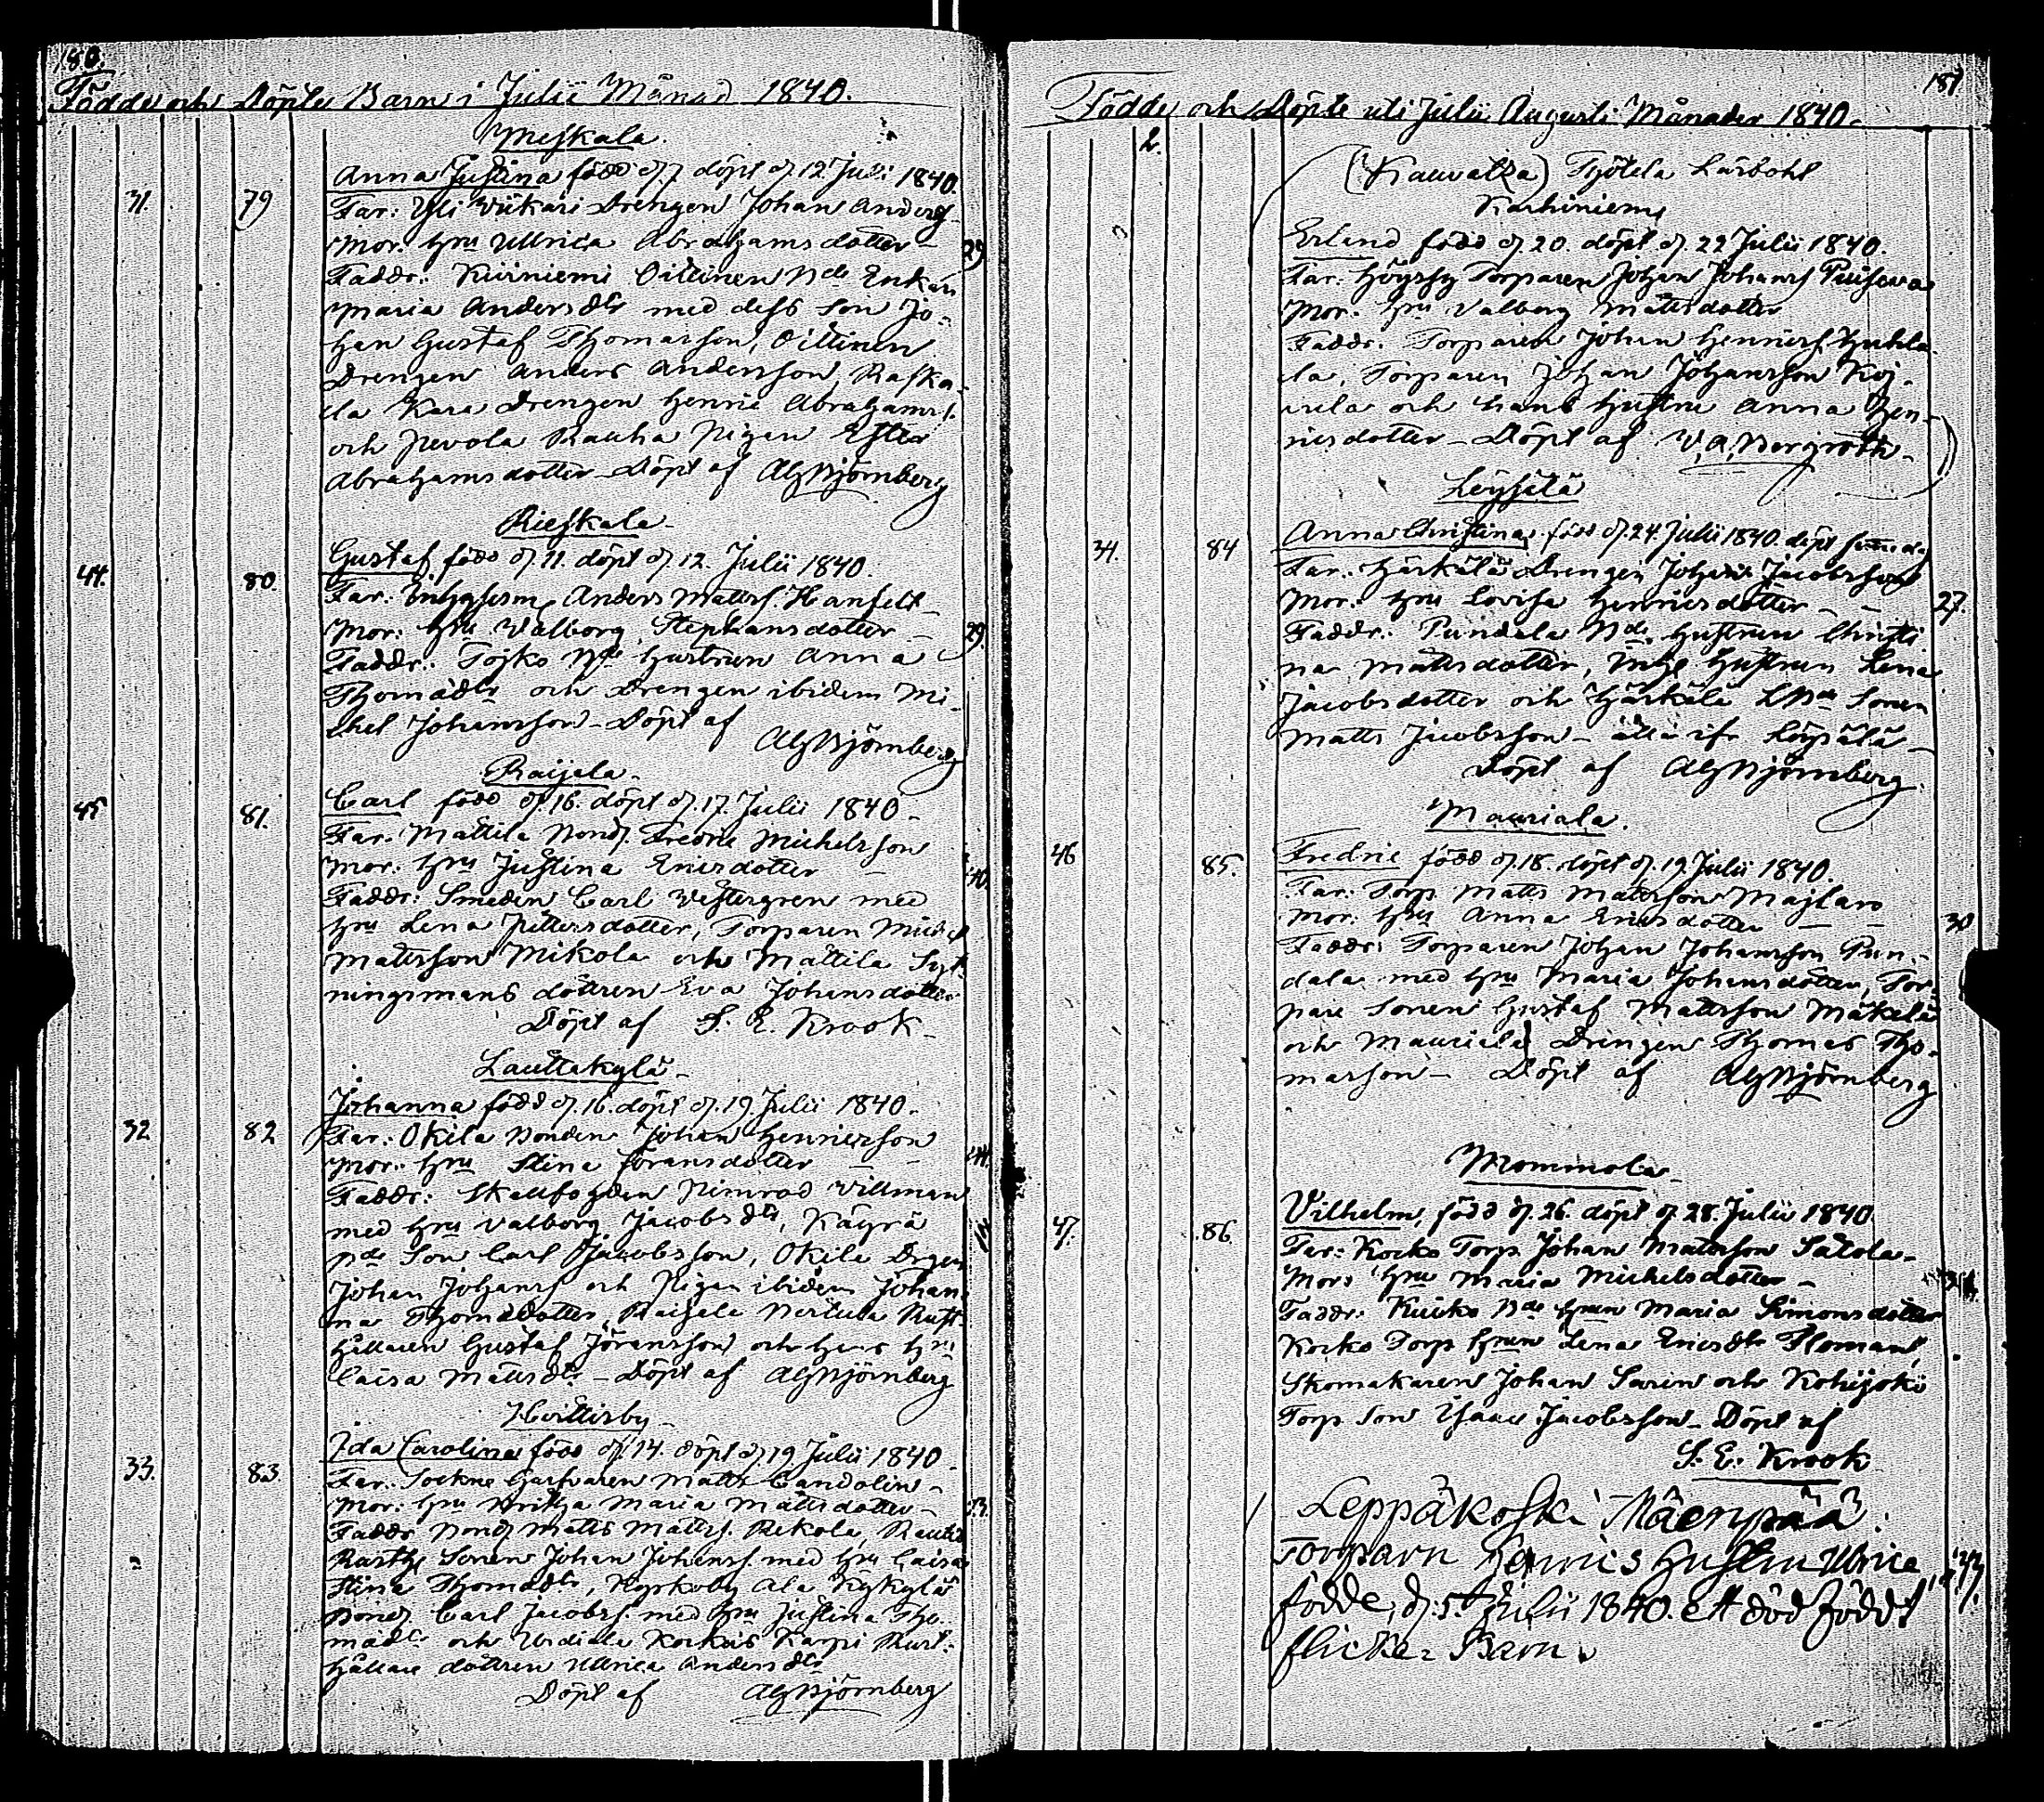 180.
Födde och Döpte Barn i Julii Månad 1840.
Meskala.
Anna Justina född d. 7 döpt d. 12 Juli 1840.
31. 79
Far: Yli Wiikari Drengen Johan Anders
Mor: hru Ullrica Abrahamsdotter – 29
Faddr: Kuiniemi Oittinen Bde Enkan
Maria Andersdtr med dess Son Jo-
han Gustaf Thomasson, Oittinen
Drengen Anders Andersson, Raska-
la Kara Drengen Henric Abrahams.
och Pevola Rauha Pigan Ester
Abrahamsdotter – Döpt af AGBjörnberg
Rieskala –
Gustaf född d. 11. döpt d. 12. Julii 1840.
44. 80.
Far: Inhysesm Anders Matts. Hanfelt –
Mor: hru Valborg Stephansdotter – 29.
Faddr: Tojko Bde hustrun Anna
Thomädtr och Drengen ibidem Mi-
chel Johansson – Döpt af
AGBjörnberg
Raijala –
Carl född d. 16. döpt d. 17. Julii 1840 –
45 81.
Far: Mattila Bond. Fredric Michelsson
Mor: hru Justina Ericsdotter – 40.
Faddr: Smeden Carl Westergren med
hru Lena Pettersdotter, Torparen Michel
Matsson Mikola och Mattila Syt-
ningsmans dottren Eva Johansdotter
Döpt af S. E. Krook –
Lauttakylä –
Johanna född d. 16. döpt d. 19. Julii 1840.
32 82
Far: Okila Bonden Johan Henricsson
Mor: hru Stina Göransdotter –
Faddr: Skallfogden Nimrod Villman
med hru Valborg Jacobsdtr, Käyrä
Bde Son Carl Jacobsson, Okila Drgen
Johan Johans och Pigan ibidem Johan-
na Thomädotter, Raijala Pertula Rust-
hållaren Gustaf Jöransson och hans hru
Caisa Mattsdtr – Döpt af AGBjörnberg
Hvittisby –
Ida Carolina född d. 14. döpt d. 19 Julii 1840.
33. 83.
Far: Sockne Garfvaren Matts Candolin –
Mor: hru Britha Maria Mattsdotter – 33.
Faddr Bond Matts Matts. Rekola, Rauta
Rasth Sonen Johan Johans. med hru Caisa
Stina Thomädtr, Kyrkoby Ala Kykylä
Bond. Carl Jacobs. med hru Justina Tho-
mädtr och Korkeis Karpi Rust-
hållare dottren Ullrica Andersdtr
Döpt af AGBjörnberg
181
Födde och Döpte uti Julii Augusti Månader 1840.
2.
(Kauvatsa) Työtela Lärbohl
Karhiniemi
Erland född d. 20. döpt d. 22 Julii 1840.
Far: Torparen Johan Johans
Mor: hru Valborg Mattsdotter
Faddr. Torparen Johan Henrics Huhta-
la, Torparen Johan Johansson Koi-
vula och hans hustru Anna Hen-
ricsdotter – Döpt af V. A. Bergroth –
Löysälä
Anna Christina född d. 24. Julii 1840. döpt samma dag
34. 84
Far: Härkälä Drengen Johan Jacobsson
Mor: hru Lovisa Henricsdotter – – 27.
Faddr: Pundala Bde hustrun Christi
na Mattsdotter, Inh. hustrun Lena
Jacobsdotter och Härkälä LBde Sonen
Matts Jacobsson – alla ifr Löysälä –
Döpt af AGBjörnberg.
Mauriala.
Fredric född d. 18. döpt d. 19. Julii 1840.
46 85.
Far: Torp. Matts Matsson Majlars
Mor: hru Anna Ericsdotter – – 30
Faddr: Torparen Johan Johansson Pun-
dala med hru Maria Johansdotter, Tor-
pare Sonen Gustaf Mattsson Mäkelä
och Mauriala Drengen Thomas Tho-
masson – Döpt af AGBjörnberg
Mommola –
Vilhelm, född d. 26. döpt d. 28. Julii 1840
47. 86.
Far: Korko Torp. Johan Matsson Sätola –
Mor: hru Maria Michelsdotter –
Faddr: Kuiko Bde hrun Maria Simonsdotter
Korko Torp hrun Lena Ericsdtr Flomans,
Skomakaren Johan Saren och Kohijoki
Torp Son Isaac Jacobsson – Döpt af
S. E. Krook
Leppäkoski Mäenpää.
Torparn Henrics Hustru Ulrica 37.
födde, d. 5. Julii 1840. ett död föddt
flicke-Barn.